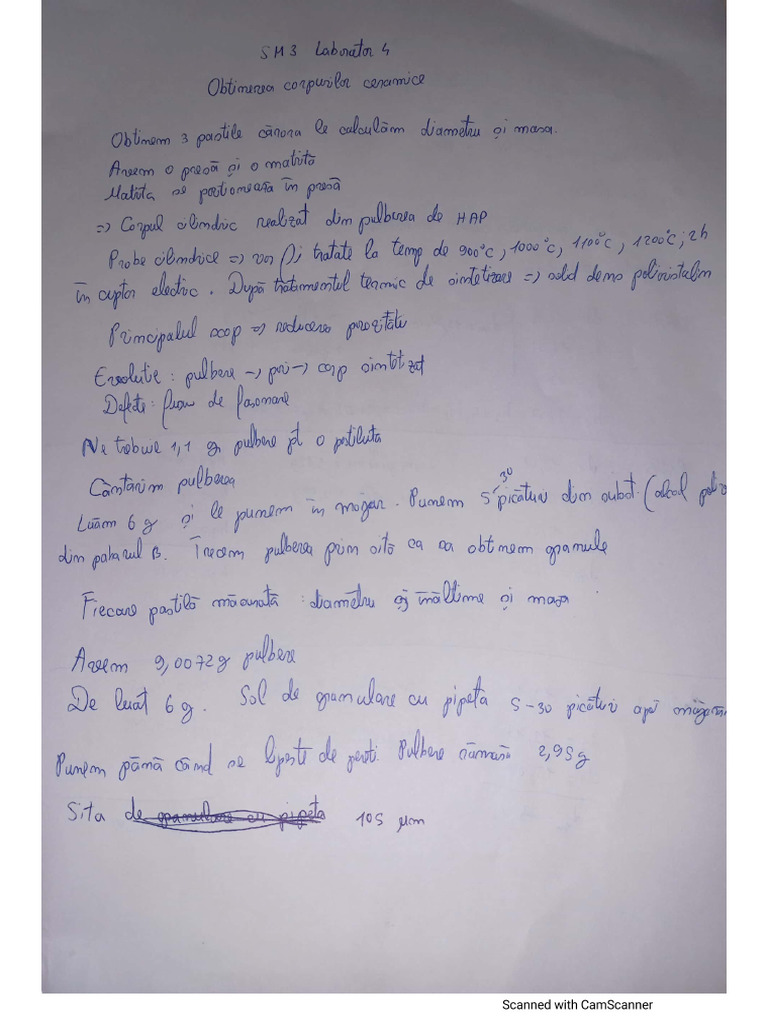 SM3 Laborator 4
Obtinerea corpurilor ceramice
Obtinem 3 pastile cărora le calculăm diametru și masa.
Avem o presă și o matrită
Matrita se pozitionează în presă
=> Corpul cilindric realizat din pulberea de HAP
Probe cilindrice => vor fi tratate la temp de 900°C, 1000°C, 1100°C, 1200°C; 2h
în cuptor electric. După tratamentul termic de sintetizare => solid dens policristalin
Principalul scop => reducerea porozitătii
Evolutie: pulbere -> pori -> corp sintetizat
Defecte: fisuri de fasonare
Ne trebuie 1,1 g pulbere pt o pastiluta
Cântărim pulberea
30
Luăm 6 g și le punem în mojar. Punem 5 picături din subst. (alcool
din paharul B. Trecem pulberea prin sită ca sa obtinem granule
Fiecare pastilă măsurată: diametru și înăltime și masa
Avem 9,0072g pulbere
De luat 6 g. Sol de granulare cu pipeta 5-30 picături apoi
Punem până când se lipeste de pereti. Pulbere rămasă 2,95g
Sita de granulare cu pipeta 105 μm
Scanned with CamScanner